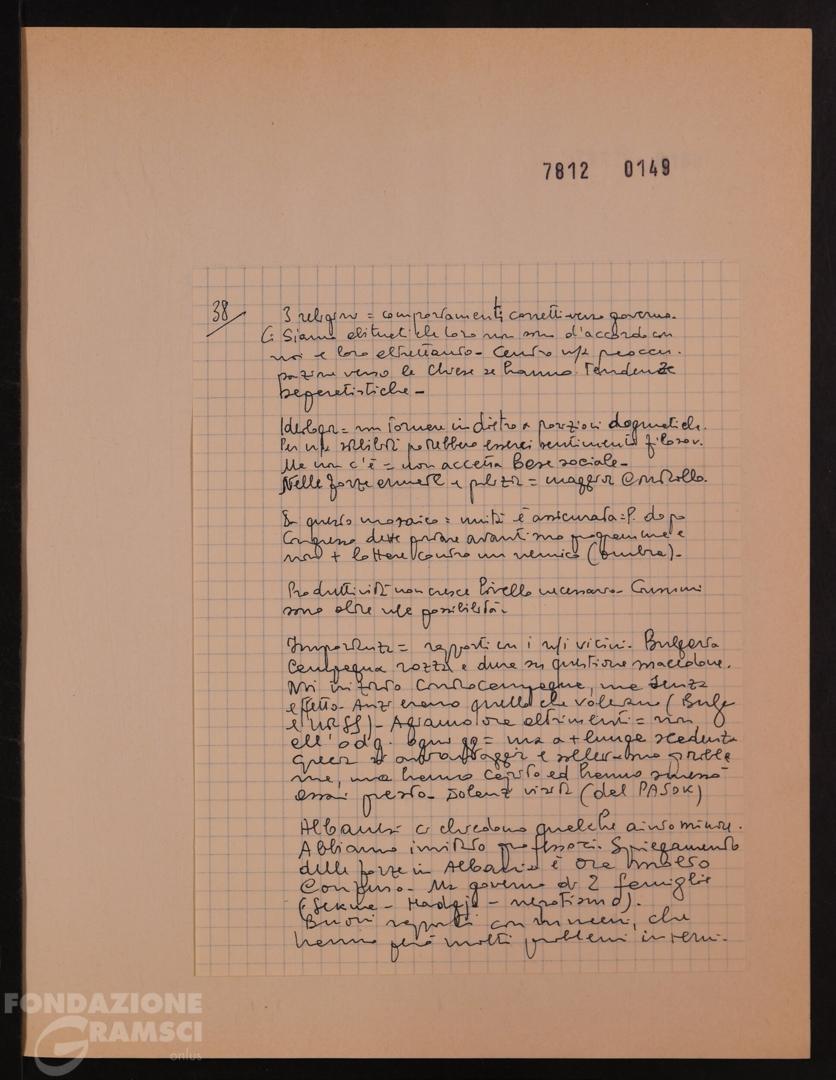 7812 0149
38
3 religioni = comportamenti corretti verso governo.
Ci Siamo abituati che loro non sono d'accordo con
noi e loro altrettanto - Centro ns preoccu-
pazione verso le Chiese se hanno Tendenze
separatistiche -
Ideologia = non tornare indietro a posizioni dogmatiche.
Per ns stabilità potrebbero esserci sentimenti filosov.
Ma non c'è = non accetta Base sociale -
Nelle forze armate e polizia = maggior Controllo.
In questo mosaico = unità è assicurata = P. dopo
Congresso deve portare avanti suo programma e
non + lottare contro un nemico (ombra) -
Produttività non cresce livello necessario - Consumi
sono oltre nle possibilità.
Importanza = rapporti con i nsi vicini. Bulgaria
Campagna rozza e dura su questione macedone.
Noi iniziato Controcampagna, ma senza
effetto. Anzi erano quello che volevano (Bulg
e URSS) - Agiamo ora altrimenti = non
all'odg. ogni gg = ma a + lunga scadenza
Grecia
me, ma hanno capito ed hanno smesso
assai presto - visita (del PASOK)
Albanesi ci chiedono qualche aiuto minore.
Abbiamo invitato professori. Spiegamento
delle forze in Albania è ora molto
Confuso - Ma governo di 2 famiglie
( - Hadgja - nepotismo).
Buoni rapporti con rumeni, che
hanno però molti problemi interni.
FONDAZIONE
GRAMSCI
onlus